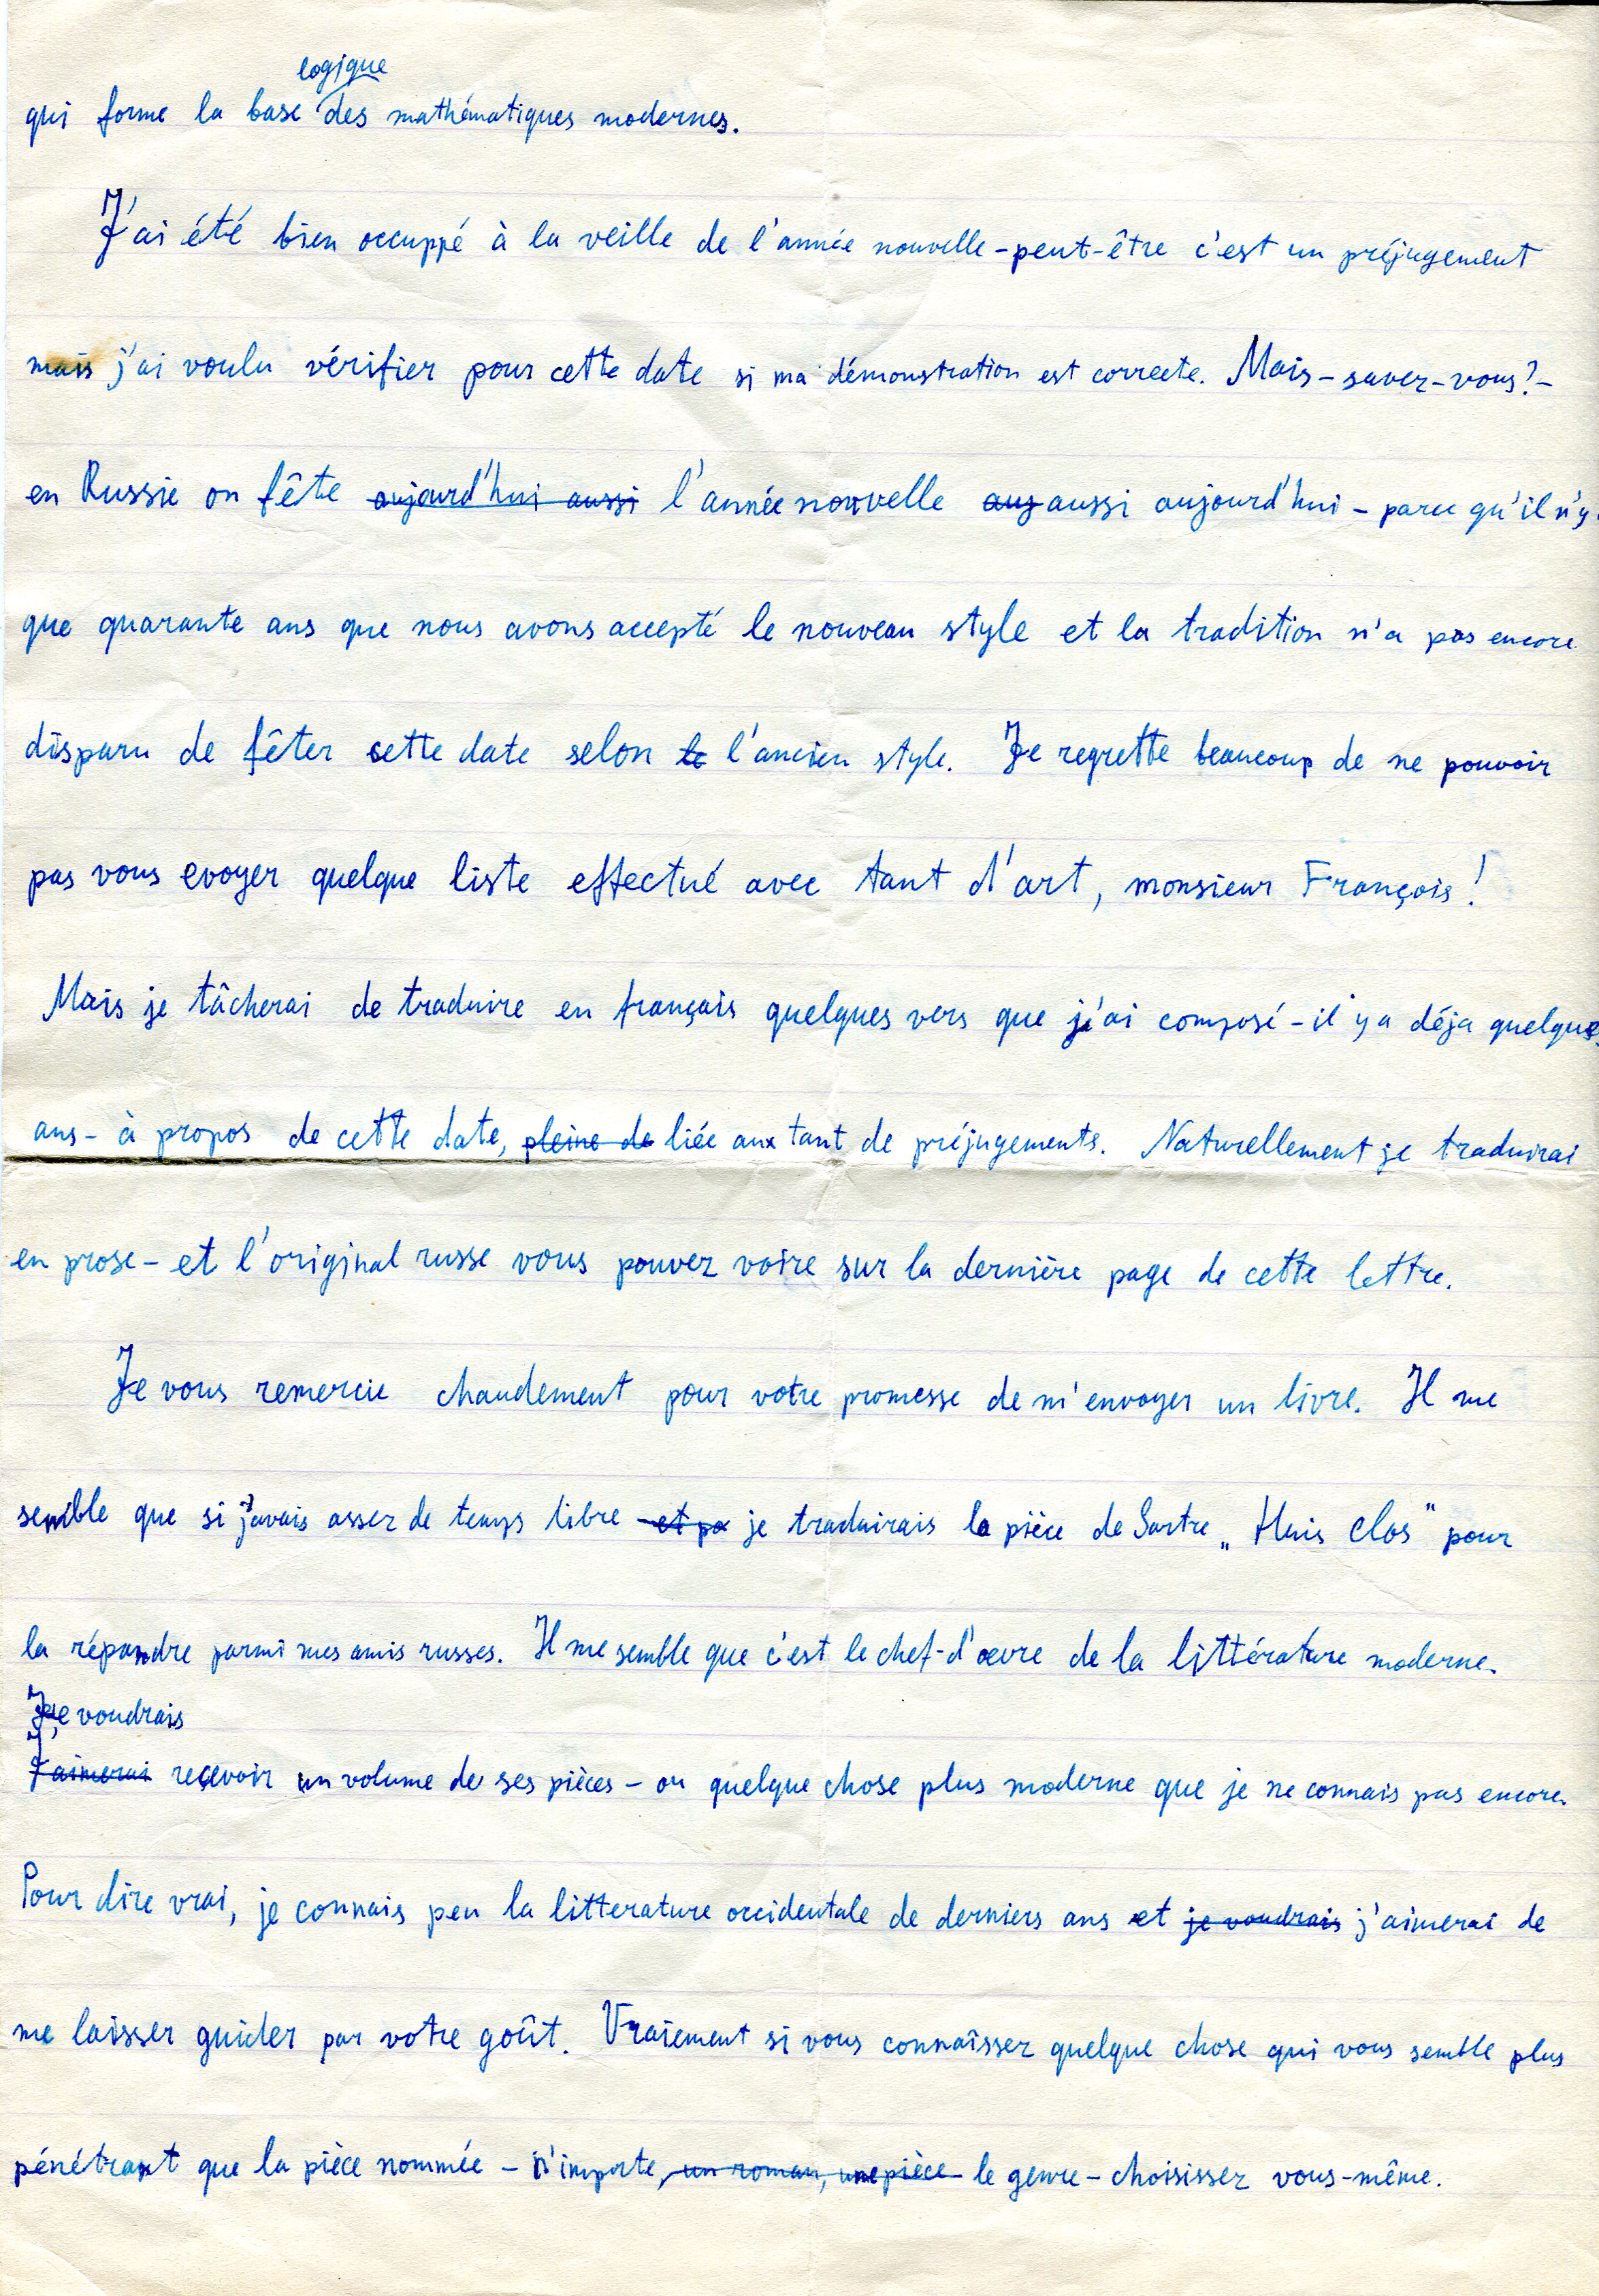 logique
qui forme la base des mathématiques modernes.
J'ai été bien occuppé à la veille de l'année nouvelle - peut-être c'est un préjugement
mais j'ai voulu vérifier pour cette date si ma démonstration est correcte. Mais - savez-vous? -
en Russie on fête aujourd'hui aussi l'année nouvelle auj aussi aujourd'hui - parce qu'il n'y
que quarante ans que nous avons accepté le nouveau style et la tradition n'a pas encore
disparu de fêter cette date selon le l'ancien style. Je regrette beaucoup de ne pouvoir
pas vous evoyer quelque liste effectué avec tant d'art, monsieur François!
Mais je tâcherai de traduire en français quelques vers que j'ai composé - il y a déja quelques
ans - à propos de cette date, pleine de liée aux tant de préjugements. Naturellement je traduirai
en prose - et l'original russe vous pouvez voire sur la dernière page de cette lettre.
Je vous remercie chaudement pour votre promesse de m'envoyer un livre. Il me
semble que si j'avais assez de temps libre et pa je traduirais la pièce de Sartre „Huis Clos" pour
la répandre parmi mes amis russes. Il me semble que c'est le chef-d'oevre de la littérature moderne.
Je voudrais
J'aimerai reçevoir un volume de ses pièces - ou quelque chose plus moderne que je ne connais pas encore.
Pour dire vrai, je connais peu la litterature occidentale de derniers ans et je voudrais j'aimerai de
me laisser guider par votre goût. Vraiement si vous connaîssez quelque chose qui vous semble plus
pénétrant que la pièce nommée - n'importe, un roman, une pièce - le genre - choisissez vous-même.